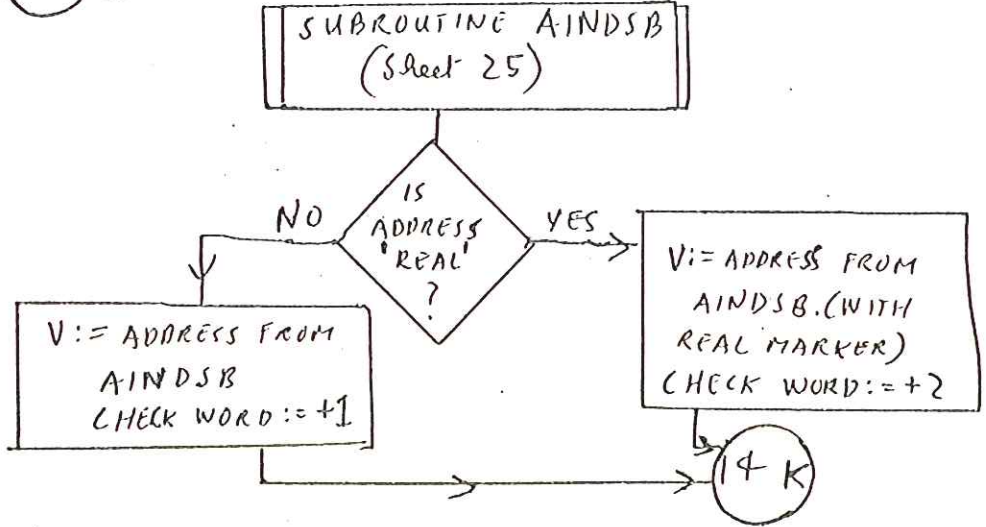 SUBROUTINE AINDSB
(Sheet 25)
IS
ADDRESS
'REAL'
?
NO
YES
V:= ADDRESS FROM
AINDSB
CHECK WORD:= +1
V:= ADDRESS FROM
AINDSB.(WITH
REAL MARKER)
CHECK WORD:= +2
14 K